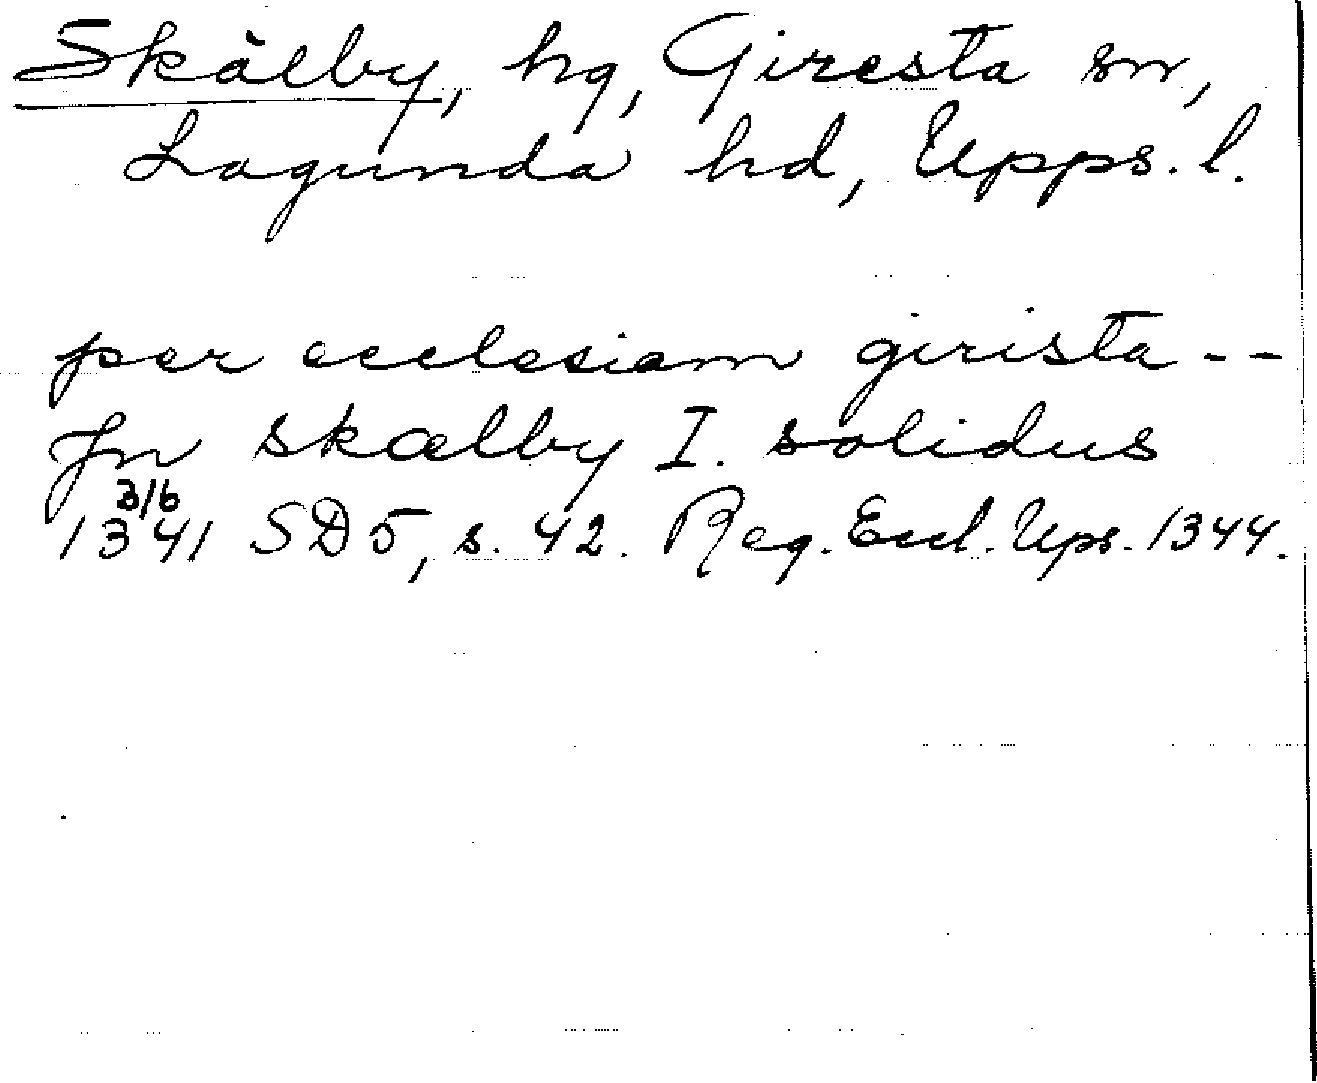 Skälby, hg, Giresta sn,
Lagunda hd, Upps. l.
per ecclesiam girista --
Jn skælby I. solidus
3/6
1341 SD 5, s. 42. Reg. Eccl. Ups. 1344.